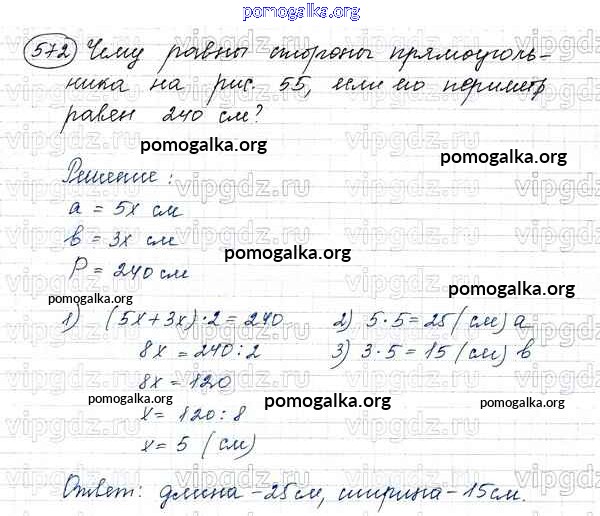 pomogalka.org
572 Чему равны стороны прямоуголь-
ника на рис. 55, если его периметр
равен 240 см?
pomogalka.org
pomogalka.org
Решение:
a = 5x см
b = 3x см
P = 240 см
pomogalka.org
pomogalka.org
pomogalka.org
1) (5x+3x)·2=240
8x = 240:2
8x = 120
x = 120:8
x = 5 (см)
2) 5·5=25(см) a
3) 3·5=15(см) b
pomogalka.org
pomogalka.org
pomogalka.org
Ответ: длина-25см, ширина-15см.
vipgdz.ru